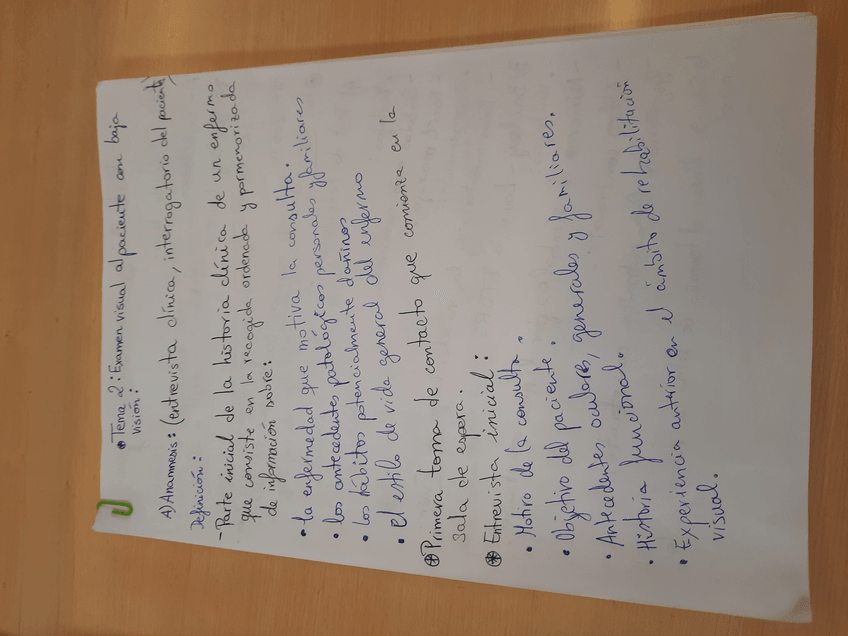 • Tema 2: Examen visual al paciente con baja
visión:
A) Anamnesis: (entrevista clínica, interrogatorio del paciente)
Definición:
- Parte inicial de la historia clínica de un enfermo
que consiste en la recogida ordenada y pormenorizada
de información sobre:
• la enfermedad que motiva la consulta.
• los antecedentes patológicos personales y familiares
• los hábitos potencialmente dañinos
• el estilo de vida general del enfermo
⊛ Primera toma de contacto que comienza en la
sala de espera.
⊛ Entrevista inicial:
• Motivo de la consulta.
• Objetivo del paciente.
• Antecedentes oculares, generales y familiares.
• Historia funcional.
• Experiencia anterior en el ámbito de rehabilitación
visual.